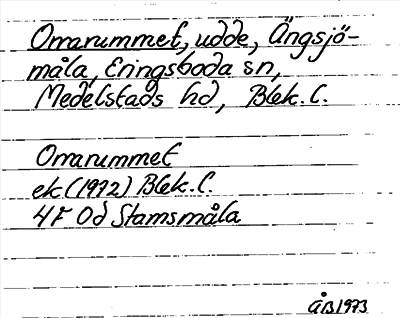 Orrarummet, udde, Ängsjö-
måla, Eringsboda sn,
Medelstads hd, Blek. l.
Orrarummet
ek (1972) Blek. l.
4F 0d Stamsmåla
ÅB 1973